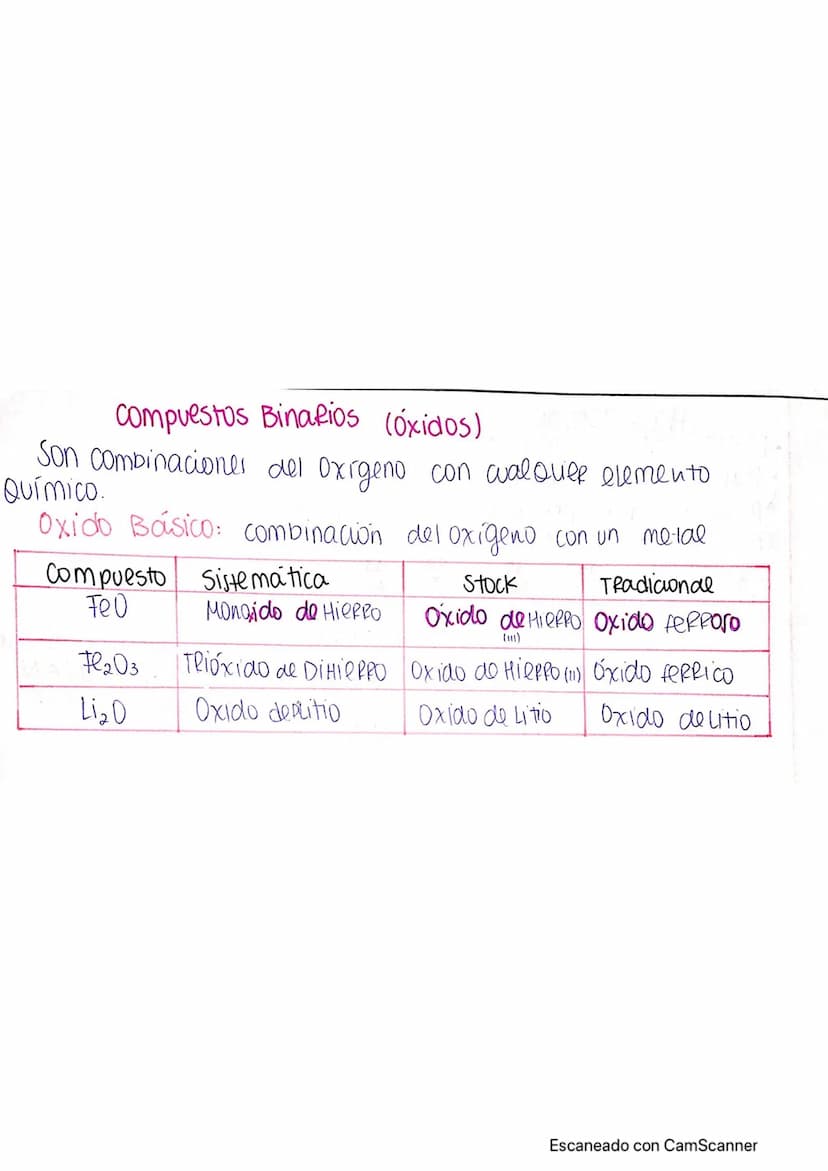 Compuestos Binarios (óxidos)
Son combinaciones del oxígeno con cualquier elemento
Químico.
Oxido Básico: combinación del oxígeno con un metal
Compuesto Sistemática Stock Tradicional
FeO Monoxido de Hierro Óxido de Hierro Oxido ferroso
(III)
Fe₂O₃ Trióxido de DiHierro Oxido de Hierro (II) Óxido ferrico
Li₂O Oxido de Litio Oxido de Litio Oxido de Litio
Escaneado con CamScanner